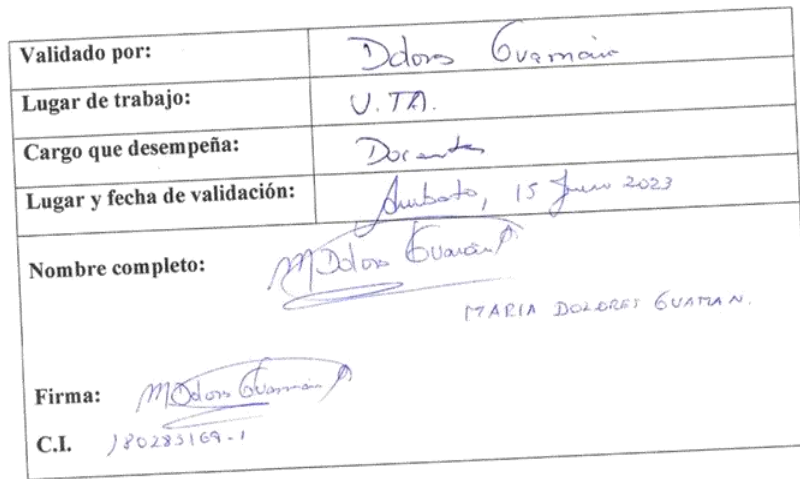 Validado por: Dolores Guamán
Lugar de trabajo: U.TA.
Cargo que desempeña: Docente
Lugar y fecha de validación: Ambato, 15 Junio 2023
Nombre completo: MDolores Guamán
MARIA DOLORES GUAMAN.
Firma: MDolores Guamán
C.I. 180285169-1